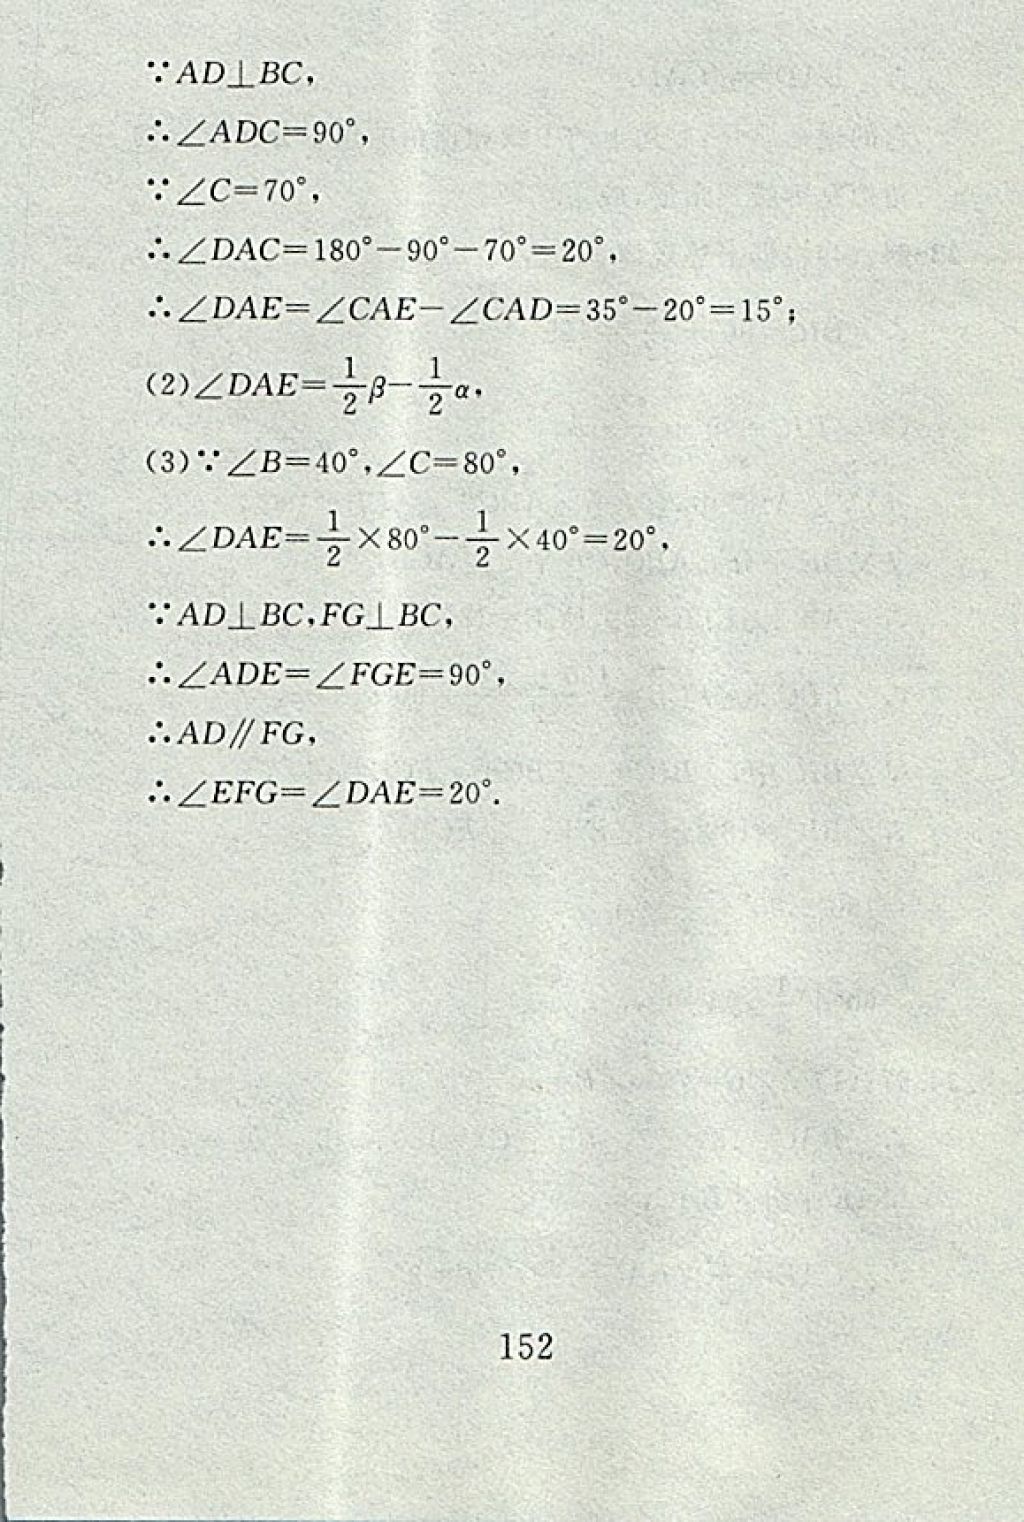 ∵AD⊥BC,
∴∠ADC=90°,
∵∠C=70°,
∴∠DAC=180°-90°-70°=20°,
∴∠DAE=∠CAE-∠CAD=35°-20°=15°;
(2)∠DAE=1/2β-1/2α,
(3)∵∠B=40°,∠C=80°,
∴∠DAE=1/2×80°-1/2×40°=20°,
∵AD⊥BC,FG⊥BC,
∴∠ADE=∠FGE=90°,
∴AD∥FG,
∴∠EFG=∠DAE=20°.
152